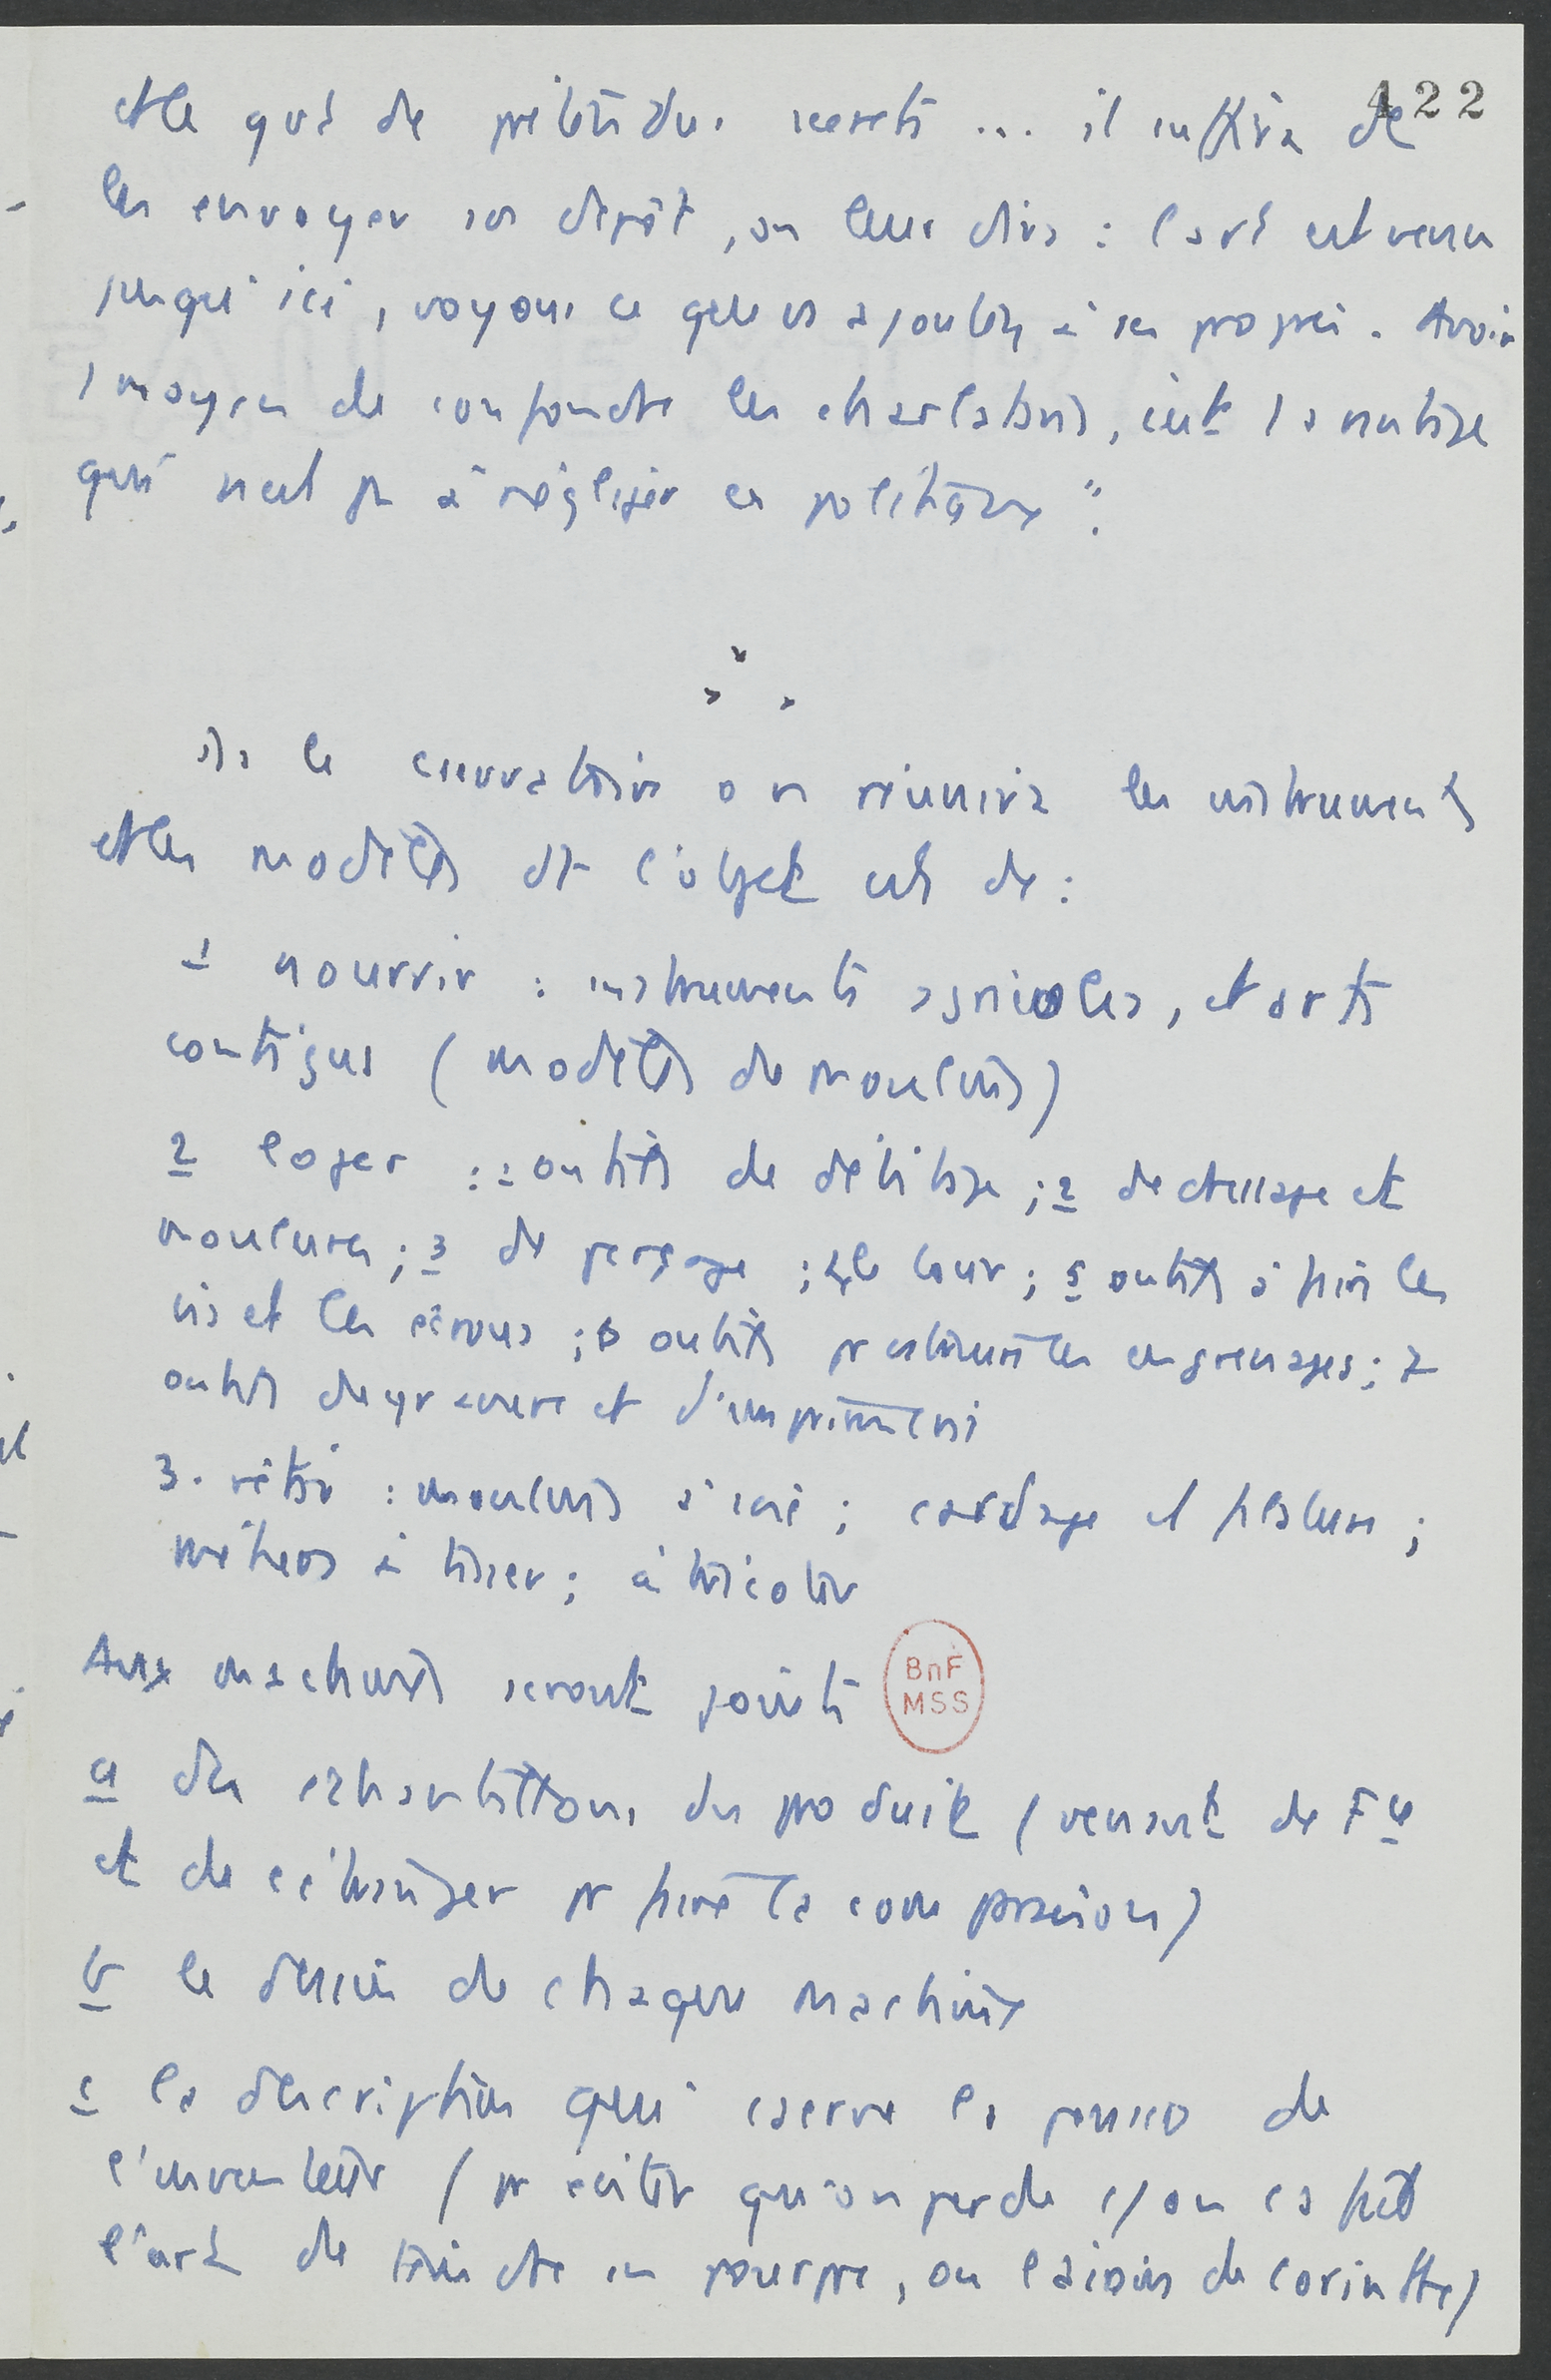 422
et le quel de prétendus secrets ... il suffira de
les envoyer au dépôt, on leur dira : l'art est venu
jusqu'ici, voyons ce que vs ajoutez à ses progrès. Avoir
1 moyen de confondre les charlatans, c'est 1 avantage
qui n'est pas à négliger en politique".
Ds le conservatoire on réunira les instruments
et les modèles dt l'objet est de :
1 nourrir : instruments agricoles, et arts
contigus (modèles de moulins)
2 loger : 1 outils de débitage ; 2 de dressage et
moulures ; 3 de perçage ; 4 le tour ; 5 outils à faire les
vis et les écrous ; 6 outils pr exécuter les engrenages ; 7
outils de gravure et d'imprimerie
3. vêtir : moulins à soie ; cardage et filature ;
métiers à tisser ; à tricoter
Aux machines seront joints
a des échantillons du produit (venant de Fce
et de l'étranger pr faire la comparaison)
b le dessin de chaque machine
c la description qui conserve la pensée de
l'inventeur (pr éviter qu'on perde c/ on l'a fait
l'art de teindre en pourpre, ou l'airain de Corinthe)
BnF
MSS